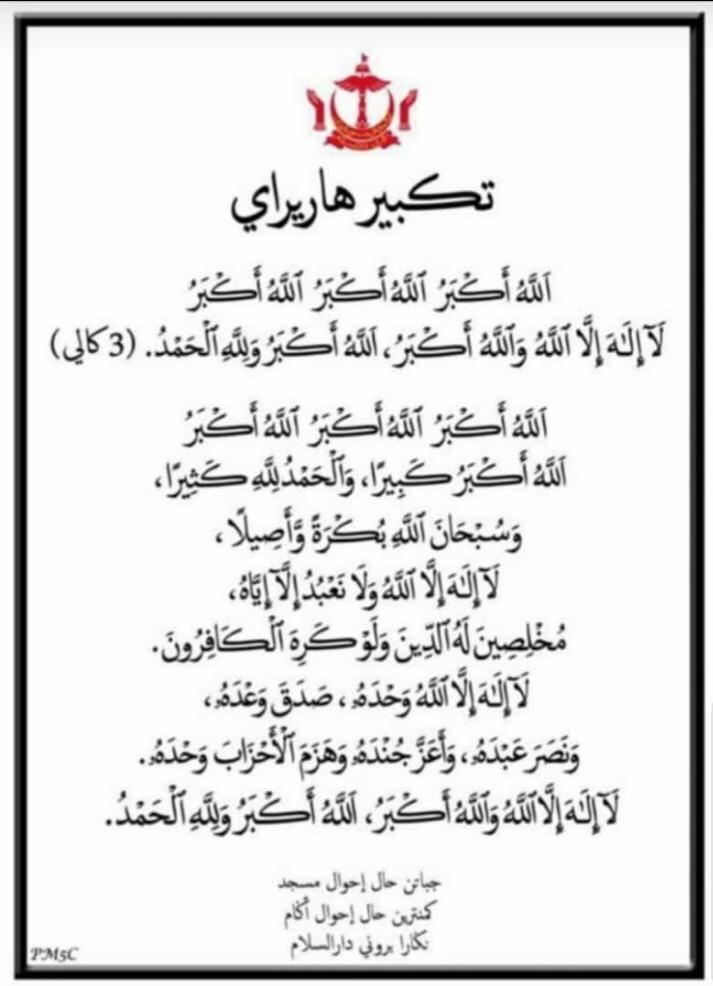 تكبير هاريراي
اَللَّهُ أَكْبَرُ ٱللَّهُ أَكْبَرُ ٱللَّهُ أَكْبَرُ
لَآ إِلَـٰهَ إِلَّا ٱللَّهُ وَٱللَّهُ أَكْبَرُ، اَللَّهُ أَكْبَرُ وَلِلَّهِ ٱلْحَمْدُ. (3 كالي)
اَللَّهُ أَكْبَرُ ٱللَّهُ أَكْبَرُ ٱللَّهُ أَكْبَرُ
اَللَّهُ أَكْبَرُ كَبِيرًا، وَٱلْحَمْدُ لِلَّهِ كَثِيرًا،
وَسُبْحَانَ ٱللَّهِ بُكْرَةً وَّأَصِيلًا،
لَآ إِلَـٰهَ إِلَّا ٱللَّهُ وَلَا نَعْبُدُ إِلَّآ إِيَّاهُ،
مُخْلِصِينَ لَهُ ٱلدِّينَ وَلَوْ كَرِهَ ٱلْكَافِرُونَ.
لَآ إِلَـٰهَ إِلَّا ٱللَّهُ وَحْدَهُۥ، صَدَقَ وَعْدَهُۥ،
وَنَصَرَ عَبْدَهُۥ، وَأَعَزَّ جُنْدَهُۥ وَهَزَمَ ٱلْأَحْزَابَ وَحْدَهُۥ.
لَآ إِلَـٰهَ إِلَّا ٱللَّهُ وَٱللَّهُ أَكْبَرُ، اَللَّهُ أَكْبَرُ وَلِلَّهِ ٱلْحَمْدُ.
جباتن حال إحوال مسجد
كمنترين حال إحوال أݢام
نݢارا بروني دارالسلام
PM5C